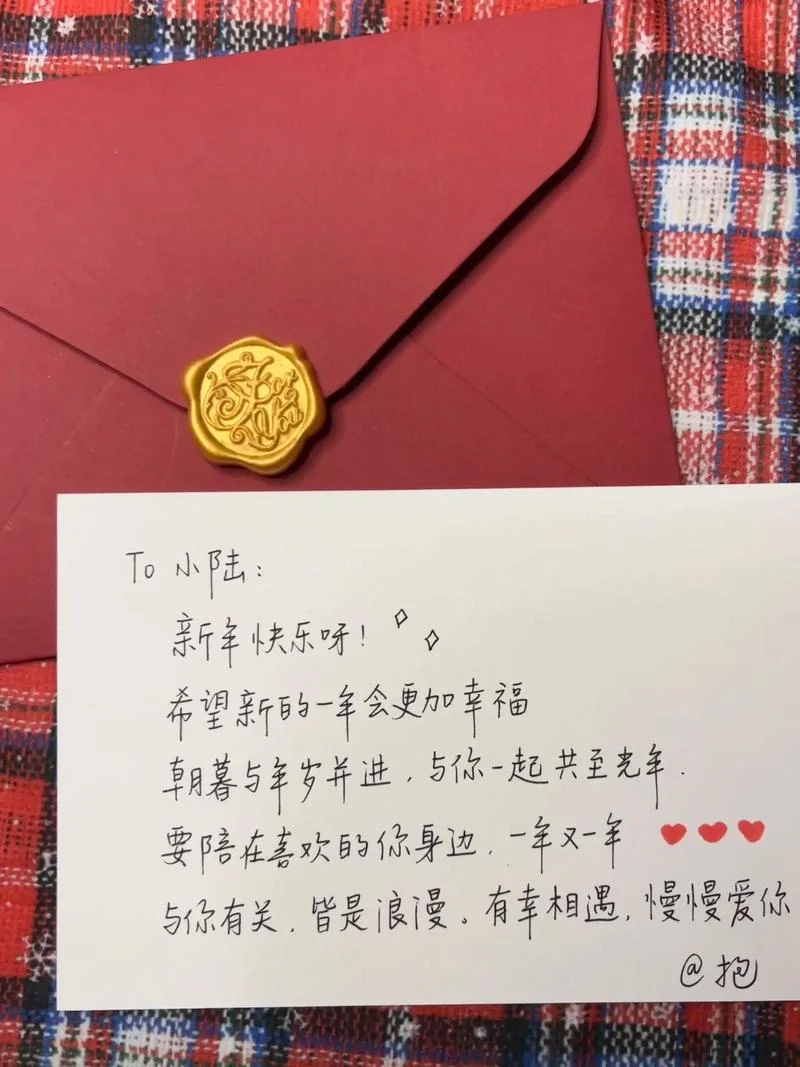 For
You
To 小陆:
新年快乐呀!
希望新的一年会更加幸福
朝暮与年岁并进,与你一起共至光年.
要陪在喜欢的你身边,一年又一年
与你有关,皆是浪漫。有幸相遇,慢慢爱你
@抱